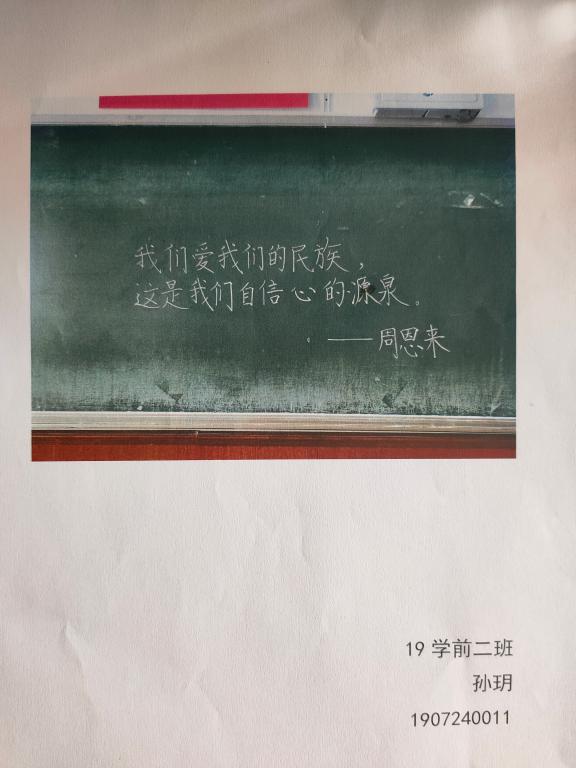 我们爱我们的民族，
这是我们自信心的源泉。
——周恩来
19 学前二班
孙玥
1907240011